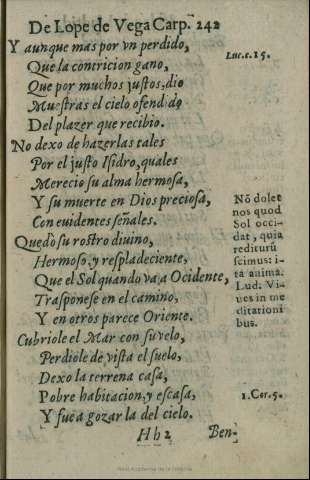 De Lope de Vega Carp. 242
Y aunque mas por vn perdido,
Luc. c. 15.
Que la contricion gano,
Que por muchos justos, dio
Muestras el cielo ofendido
Del plazer que recibio.
No dexo de hazerlas tales
Por el justo Isidro, quales
Merecio su alma hermosa,
Y su muerte en Dios preciosa,
Con euidentes señales.
Quedo su rostro diuino,
Hermoso, y respladeciente,
Que el Sol quando va a Ocidente,
Trasponese en el camino,
Y en otros parece Oriente.
Nõ dolet
nos quod
Sol occi-
dat, quia
rediturũ
scimus: i-
ta anima.
Lud. Vi-
ues in me
ditationi
bus.
Cubriole el Mar con su velo,
Perdiole de vista el suelo,
Dexo la terrena casa,
Pobre habitacion, y escasa,
1. Cor. 5.
Y fue a gozar la del cielo.
Hh2
Ben-
Real Academia de la Historia